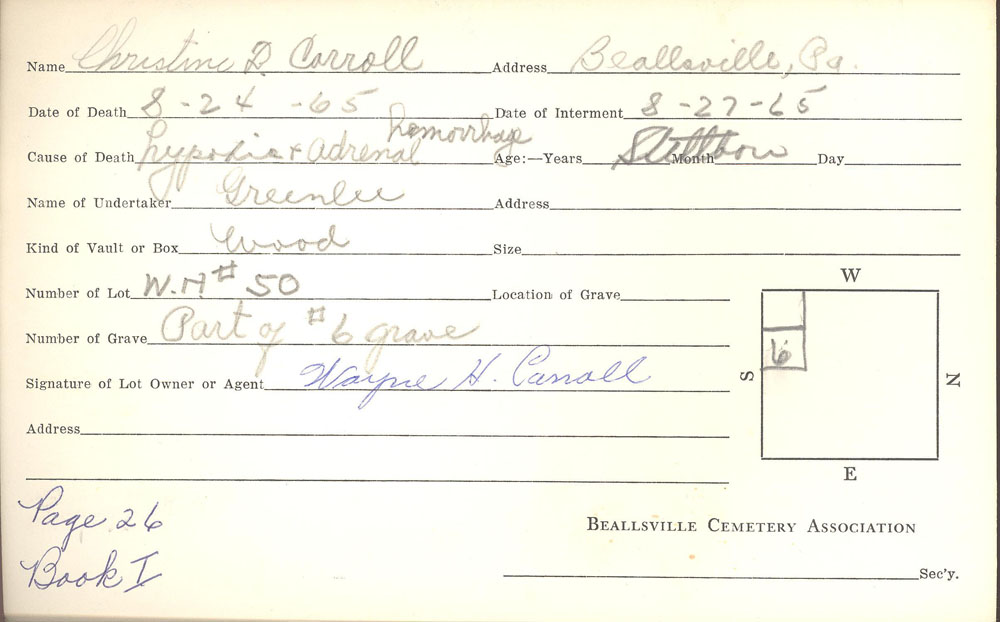 Name Christine D. Carroll Address Beallsville, Pa.
Date of Death 8-24-65 Date of Interment 8-27-65
hemorrhage
Cause of Death hypoxia + adrenal Age:—Years Stillborn Month Day
Name of Undertaker Greenlee Address
Kind of Vault or Box Wood Size
Number of Lot W.H # 50 Location of Grave
Number of Grave Part of #6 grave
Signature of Lot Owner or Agent Wayne H. Carroll
Address
W
S
6
N
E
Page 26
Book I
BEALLSVILLE CEMETERY ASSOCIATION
Sec'y.